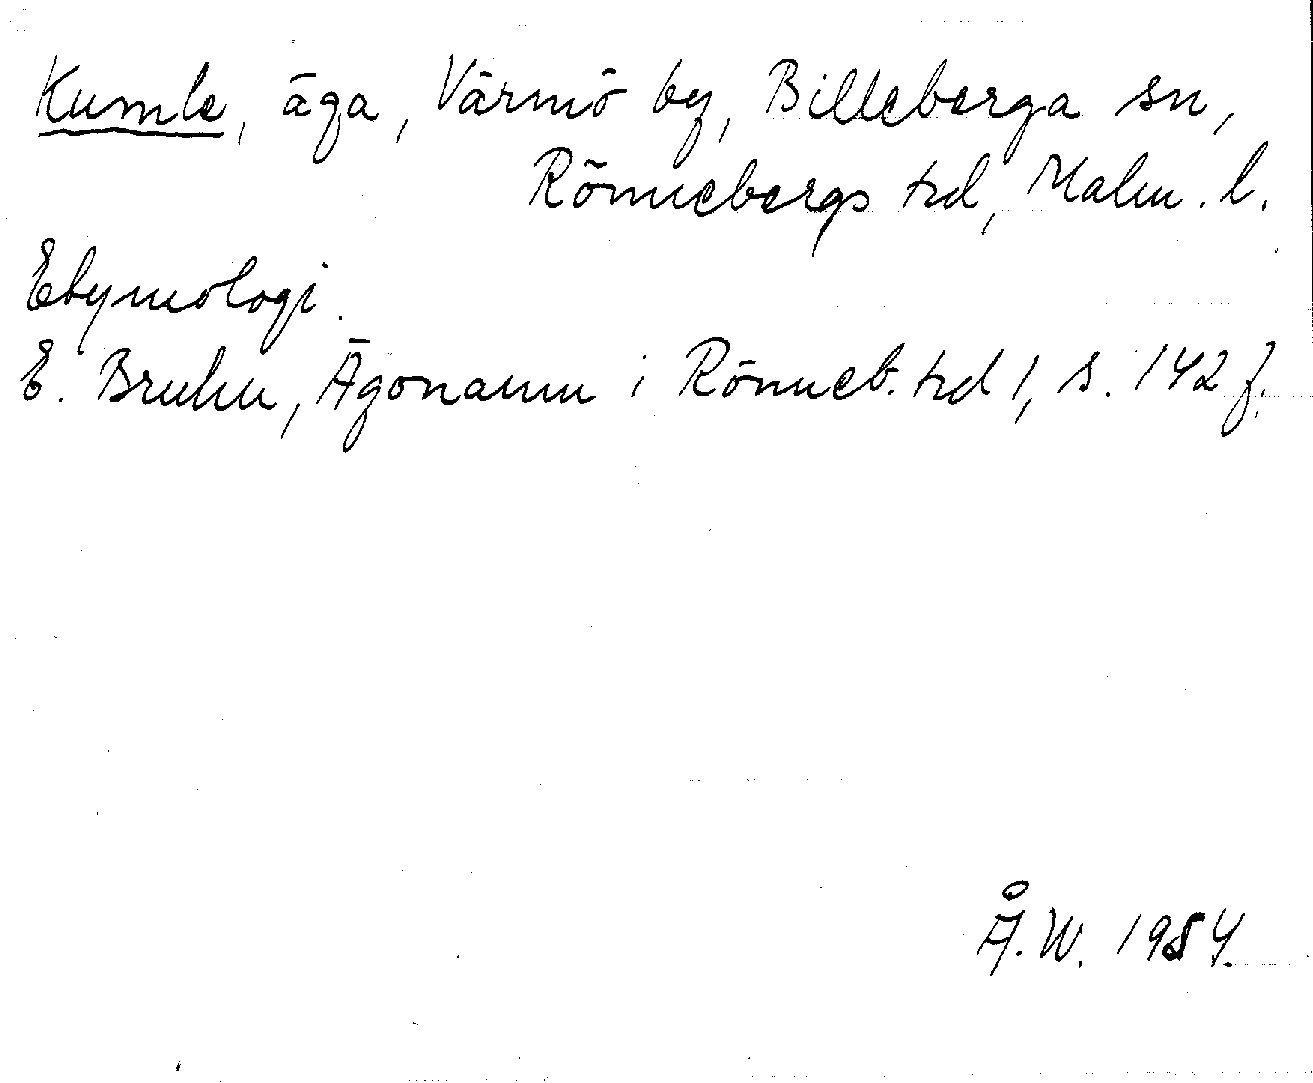 Kumle, äga, Värmö by, Billeberga sn,
Rönnebergs hd, Malm. l.
Etymologi.
E. Bruhn, Ägonamn i Rönneb. hd 1, s. 142 f.
Å.W. 1984.